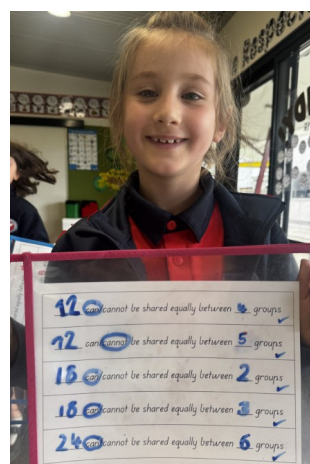 12 can/cannot be shared equally between 4 groups
12 can/cannot be shared equally between 5 groups
18 can/cannot be shared equally between 2 groups
18 can/cannot be shared equally between 3 groups
24 can/cannot be shared equally between 6 groups